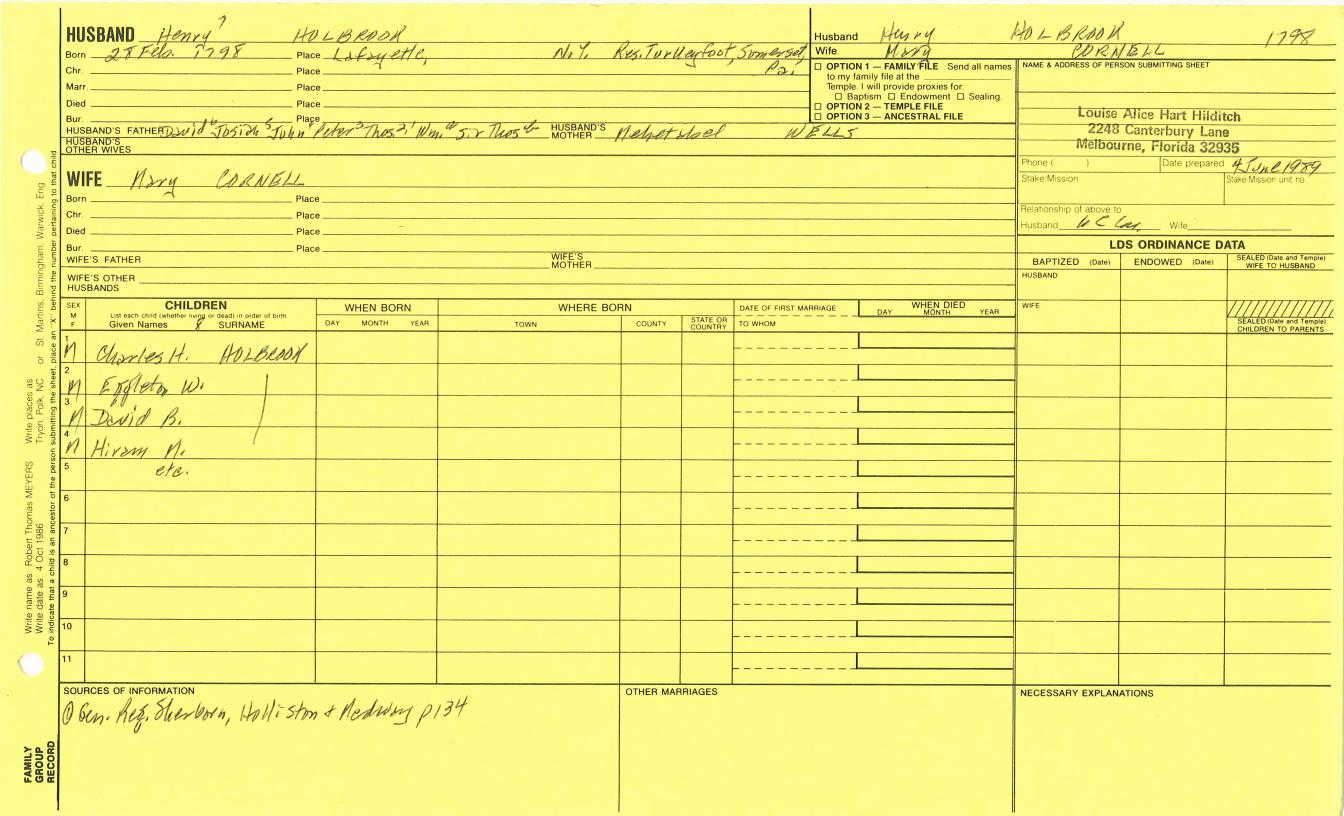 HUSBAND Henry 7 HOLBROOK
Born 28 Feb. 1798 Place Lafayette, N.Y. Res. Turkeyfoot, Somerset, Pa.
Chr. Place
Marr. Place
Died Place
Bur. Place
HUSBAND'S FATHER David 6 Josiah 5 John 4 Peter 3 Thos 2,1 Wm. Sir Thos HUSBAND'S MOTHER WELLS
HUSBAND'S OTHER WIVES
WIFE Mary CORNELL
Born Place
Chr. Place
Died Place
Bur. Place
WIFE'S FATHER WIFE'S MOTHER
WIFE'S OTHER HUSBANDS
Husband Henry HOLBROOK 1798
Wife Mary CORNELL
OPTION 1 — FAMILY FILE Send all names
to my family file at the
Temple. I will provide proxies for
Baptism Endowment Sealing.
OPTION 2 — TEMPLE FILE
OPTION 3 — ANCESTRAL FILE
NAME & ADDRESS OF PERSON SUBMITTING SHEET
Louise Alice Hart Hilditch
2248 Canterbury Lane
Melbourne, Florida 32935
Phone ( ) Date prepared 4 June 1989
Stake/Mission Stake/Mission unit no.
Relationship of above to
Husband Wife
LDS ORDINANCE DATA
BAPTIZED (Date) ENDOWED (Date) SEALED (Date and Temple) WIFE TO HUSBAND
HUSBAND
WIFE
SEALED (Date and Temple) CHILDREN TO PARENTS
SEX M F
CHILDREN
List each child (whether living or dead) in order of birth
Given Names 8 SURNAME
WHEN BORN
DAY MONTH YEAR
WHERE BORN
TOWN COUNTY STATE OR COUNTRY
DATE OF FIRST MARRIAGE
TO WHOM
WHEN DIED
DAY MONTH YEAR
1 M Charles H. HOLBROOK
2 M Eggleton W.
3 M David B.
4 M Hiram M.
5 etc.
6
7
8
9
10
11
SOURCES OF INFORMATION
① Gen. Reg. Sherborn, Holliston & Medway p134
OTHER MARRIAGES
NECESSARY EXPLANATIONS
Write name as Robert Thomas MEYERS Write places as Tryon, Polk, NC or St. Martins, Birmingham, Warwick, Eng
Write date as 4 Oct 1986
To indicate that a child is an ancestor of the person submitting the sheet, place an "X" behind the number pertaining to that child
FAMILY
GROUP
RECORD